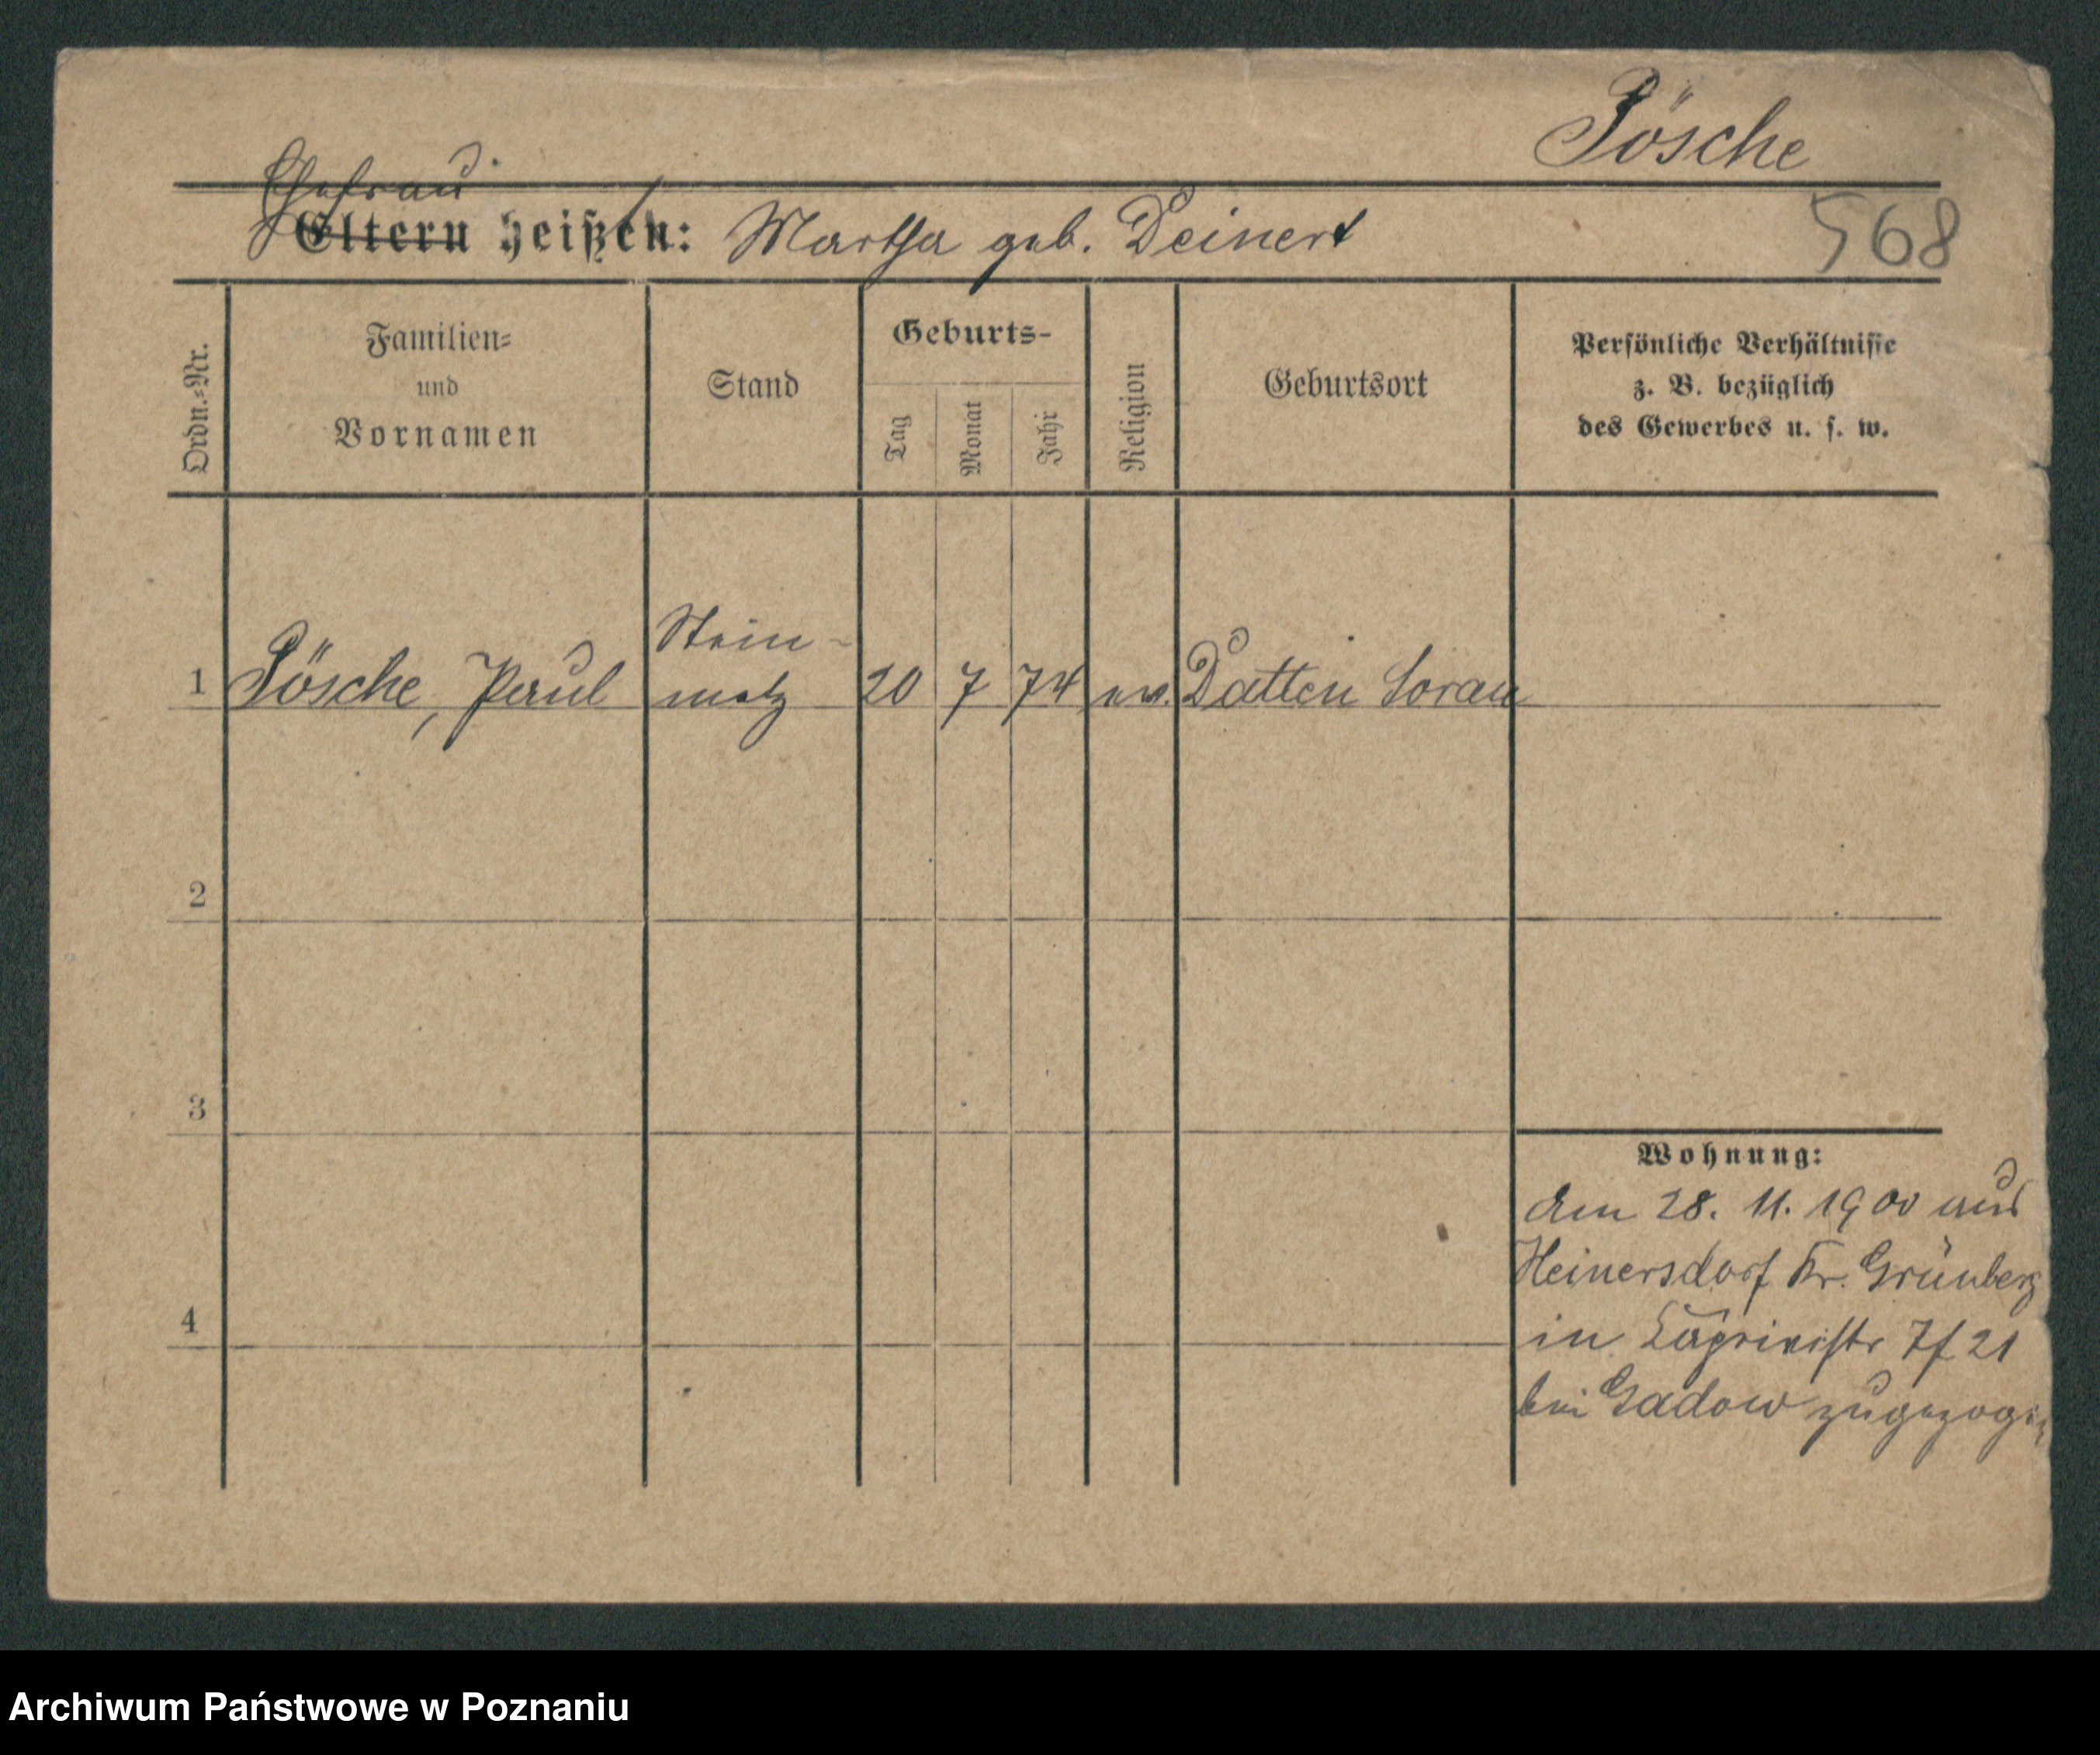 Pösche
Ehefrau
Eltern heißen: Martha geb. Deinert
568
Ordn.-Nr.
Familien-
und
Vornamen
Stand
Geburts-
Tag
Monat
Jahr
Religion
Geburtsort
Persönliche Verhältnisse
z. B. bezüglich
des Gewerbes u. s. w.
Stein-
1 Pösche, Paul metz 20 7 74 ev. Datten Sorau
2
3
Wohnung:
Am 28. 11. 1900 aus
Heinersdorf Kr. Grünberg
4
in Caprivistr 7f 21
bei Gadow zugezogen
Archiwum Państwowe w Poznaniu